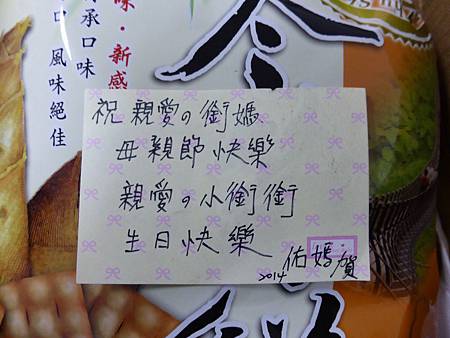 味·新感
承口味
口 風味絕佳
祝 親愛の銜媽
母親節快樂
親愛の小銜銜
生日快樂
2014 佑媽賀